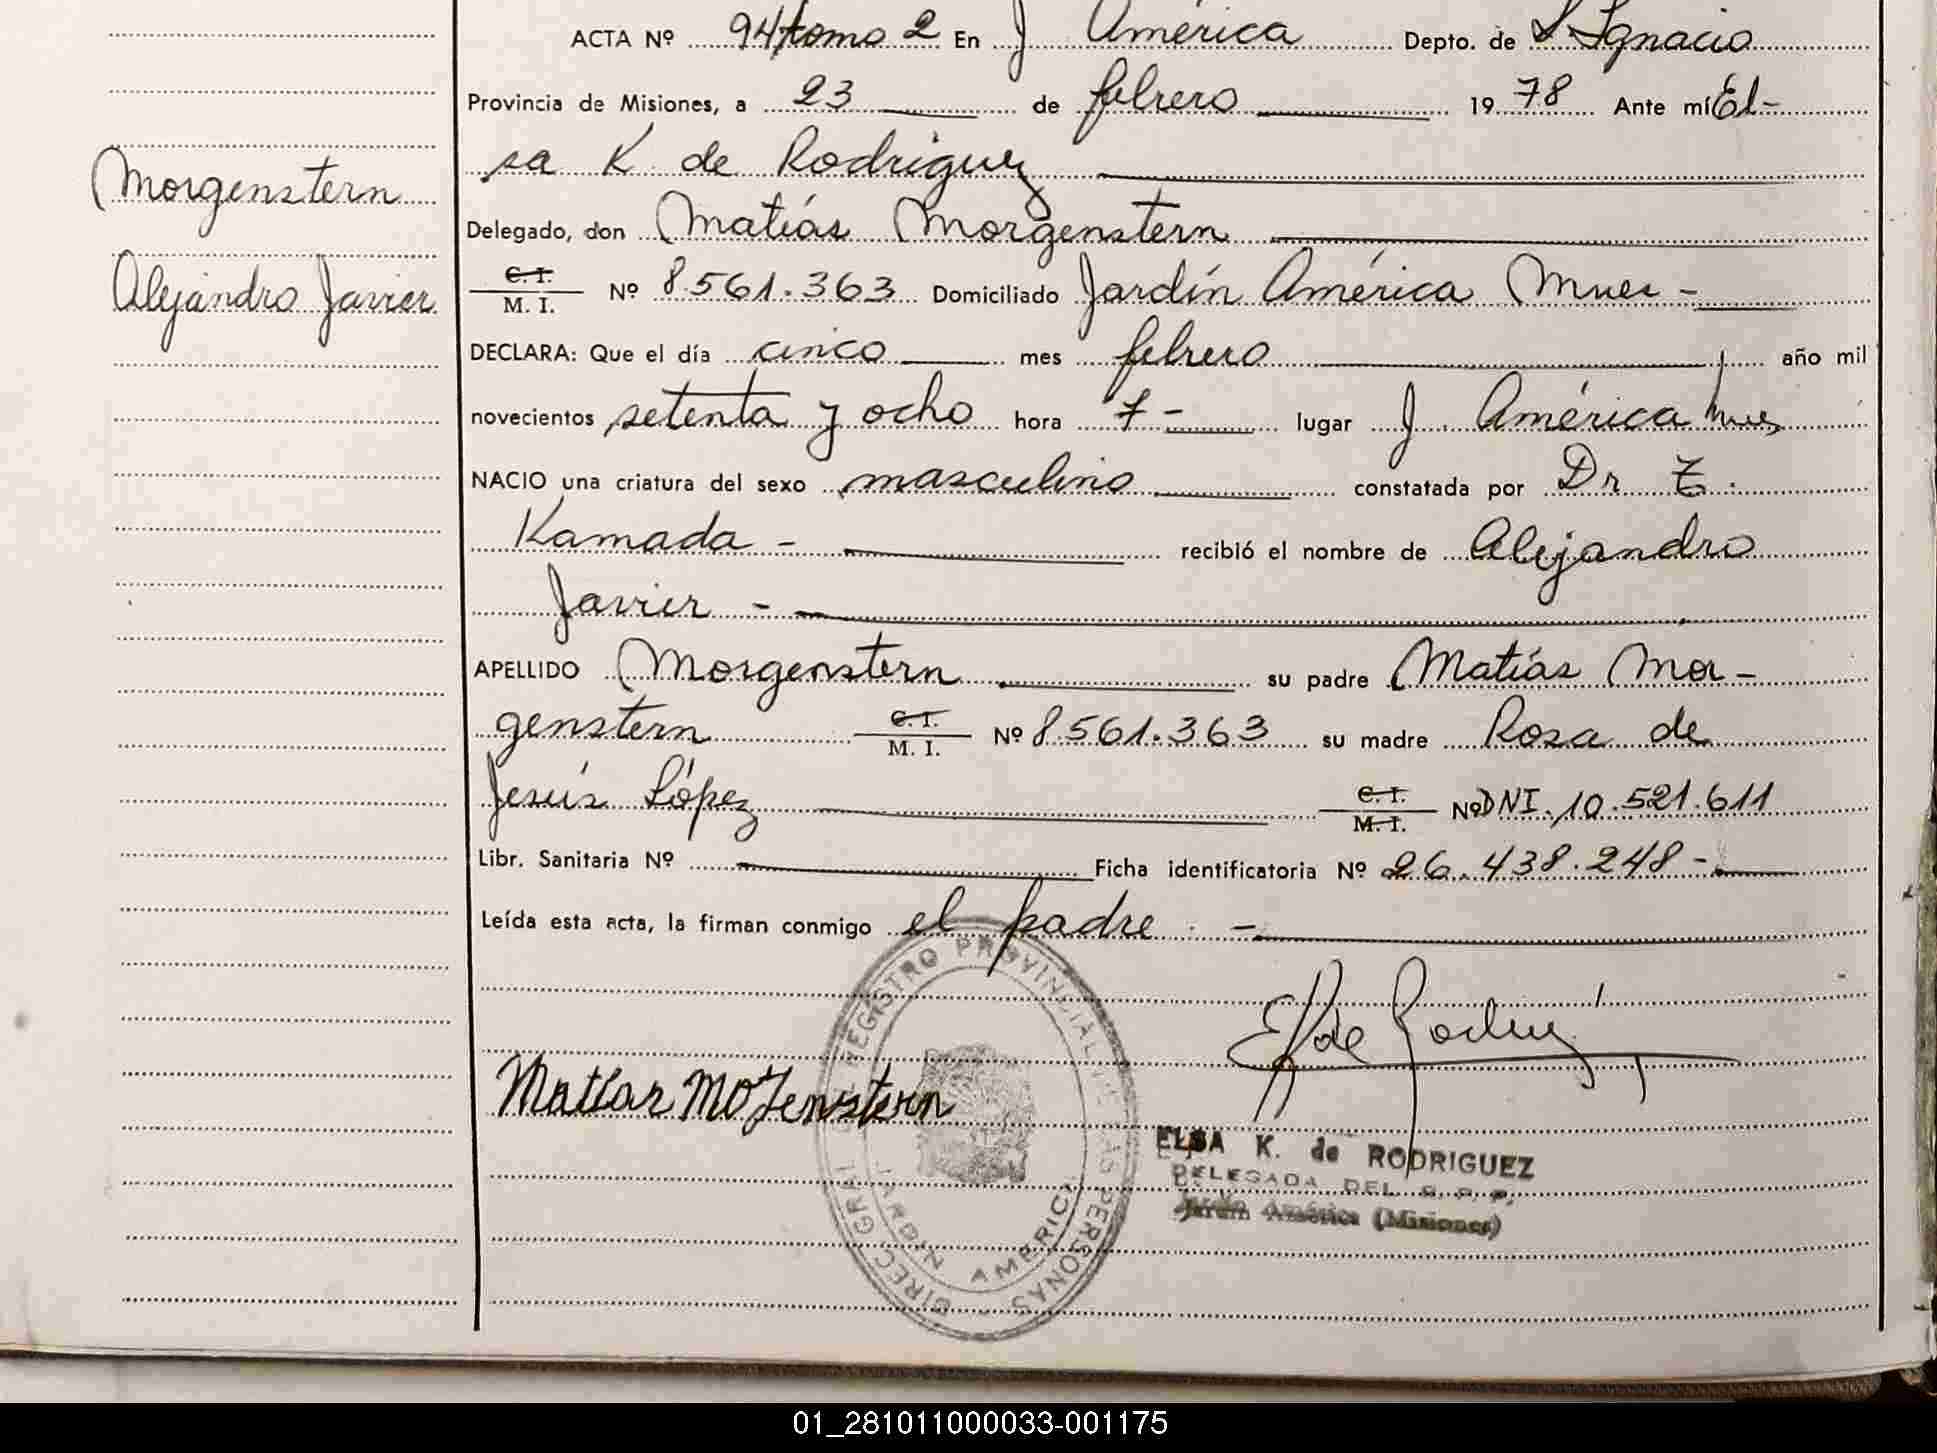 ACTA Nº 94 tomo 2 En J América Depto. de S. Ignacio
Provincia de Misiones, a 23 de febrero 1978 Ante mí El-
sa K. de Rodriguez
Morgenstern
Delegado, don Matías Morgenstern
Alejandro Javier
C. I.
M. I. Nº 8.561.363 Domiciliado Jardín América Mnes -
DECLARA: Que el día cinco mes febrero año mil
novecientos setenta y ocho hora 7 - lugar J. América Mnes
NACIO una criatura del sexo masculino constatada por Dr
Kamada - recibió el nombre de Alejandro
Javier -
APELLIDO Morgenstern su padre Matías Mor-
genstern C. I. M. I. Nº 8.561.363 su madre Rosa de
Jesús López C. I. M. I. Nº DNI. 10.521.611
Libr. Sanitaria Nº Ficha identificatoria Nº 26.438.248 -
Leída esta acta, la firman conmigo el padre. -
DIREC. GRAL. REGISTRO PROVINCIAL DE LAS PERSONAS
JARDIN AMERICA
ELSA K. de RODRIGUEZ
DELEGADA DEL R. P. P.
Jardín América (Misiones)
01_281011000033-001175